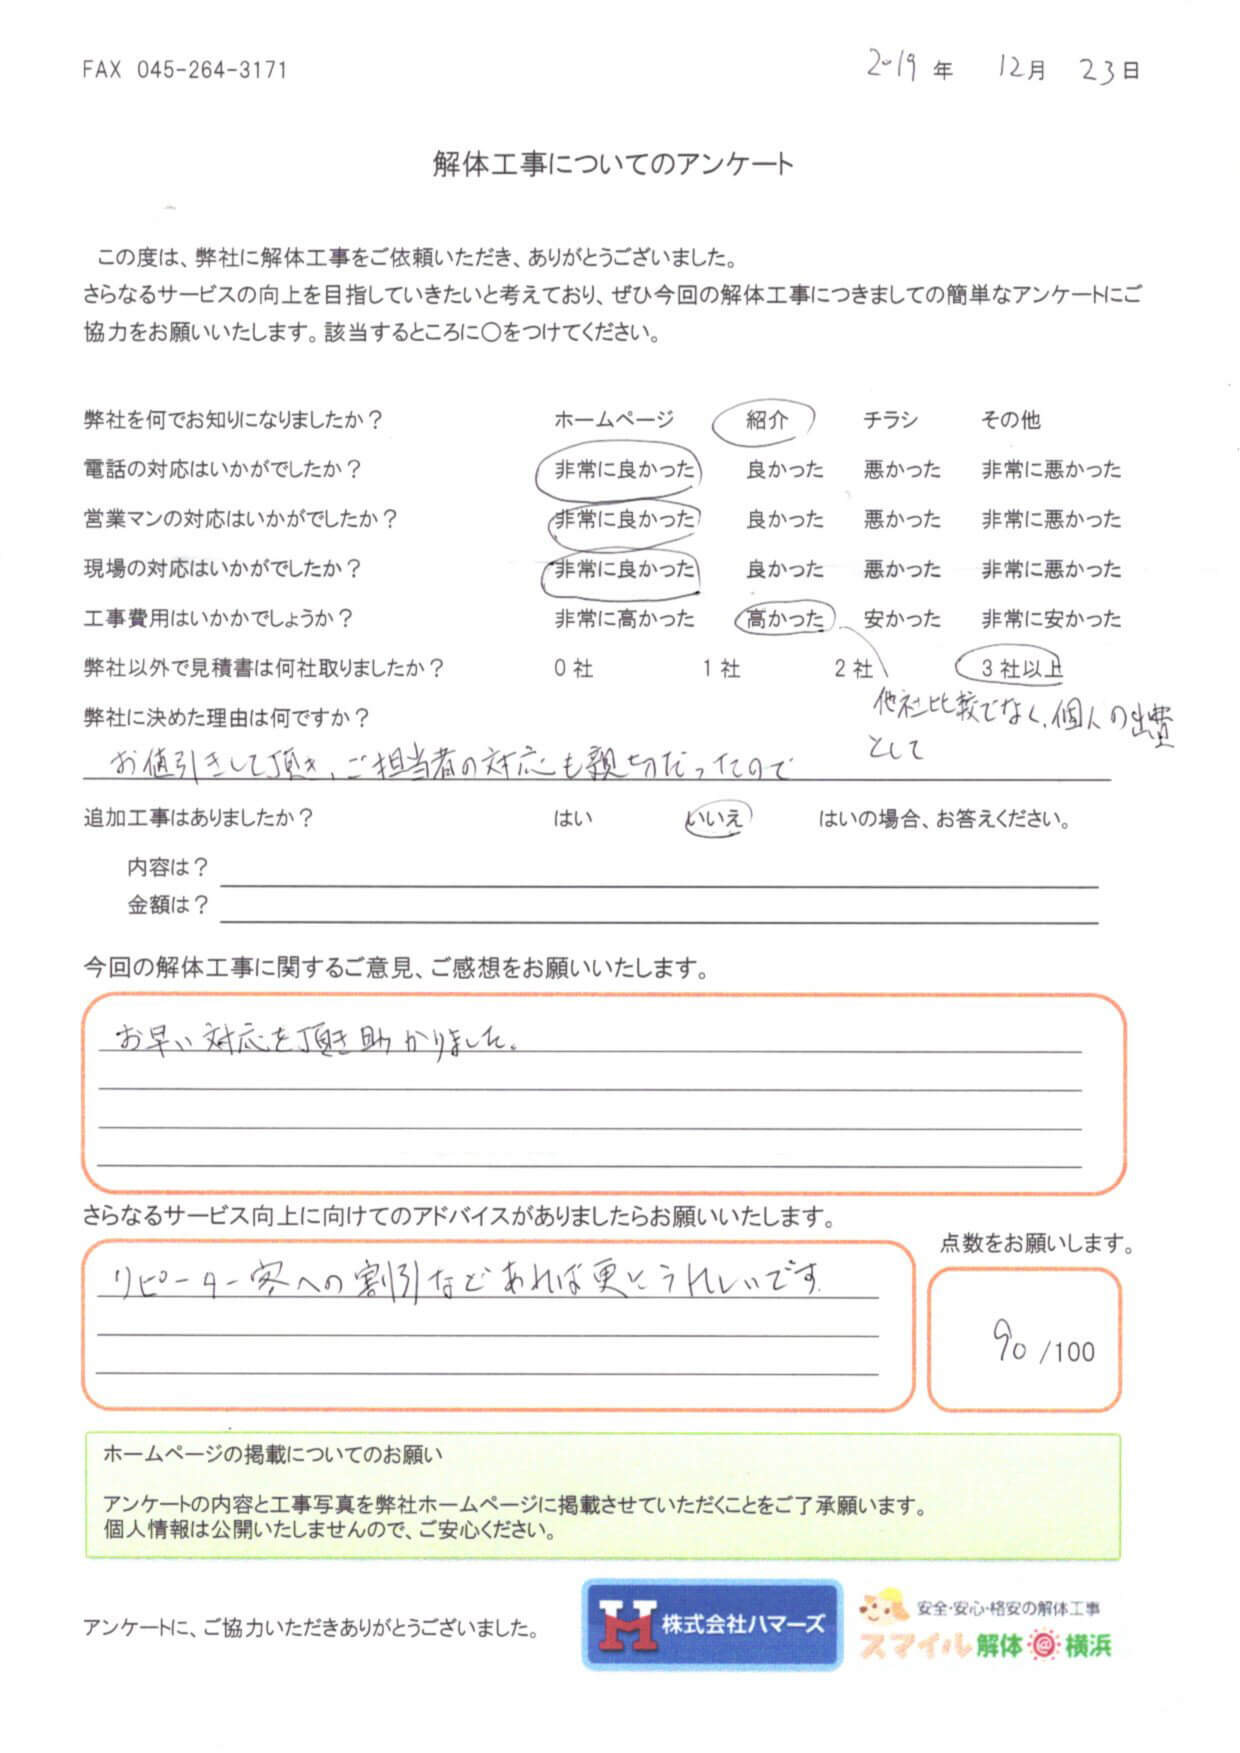 FAX 045-264-3171
2019年 12月 23日
解体工事についてのアンケート
この度は、弊社に解体工事をご依頼いただき、ありがとうございました。
さらなるサービスの向上を目指していきたいと考えており、ぜひ今回の解体工事につきましての簡単なアンケートにご
協力をお願いいたします。該当するところに〇をつけてください。
弊社を何でお知りになりましたか？ ホームページ 紹介 チラシ その他
電話の対応はいかがでしたか？ 非常に良かった 良かった 悪かった 非常に悪かった
営業マンの対応はいかがでしたか？ 非常に良かった 良かった 悪かった 非常に悪かった
現場の対応はいかがでしたか？ 非常に良かった 良かった 悪かった 非常に悪かった
工事費用はいかかでしょうか？ 非常に高かった 高かった 安かった 非常に安かった
弊社以外で見積書は何社取りましたか？ 0社 1社 2社 3社以上
他社比較でなく、個人の出費
として
弊社に決めた理由は何ですか？
お値引きして頂き、ご担当者の対応も親切だったので
追加工事はありましたか？ はい いいえ はいの場合、お答えください。
内容は？
金額は？
今回の解体工事に関するご意見、ご感想をお願いいたします。
お早い対応を頂き助かりました。
さらなるサービス向上に向けてのアドバイスがありましたらお願いいたします。
点数をお願いします。
リピーター客への割引などあれば更にうれしいです
90/100
ホームページの掲載についてのお願い
アンケートの内容と工事写真を弊社ホームページに掲載させていただくことをご了承願います。
個人情報は公開いたしませんので、ご安心ください。
アンケートに、ご協力いただきありがとうございました。
H 株式会社ハマーズ
安全・安心・格安の解体工事
スマイル解体@横浜